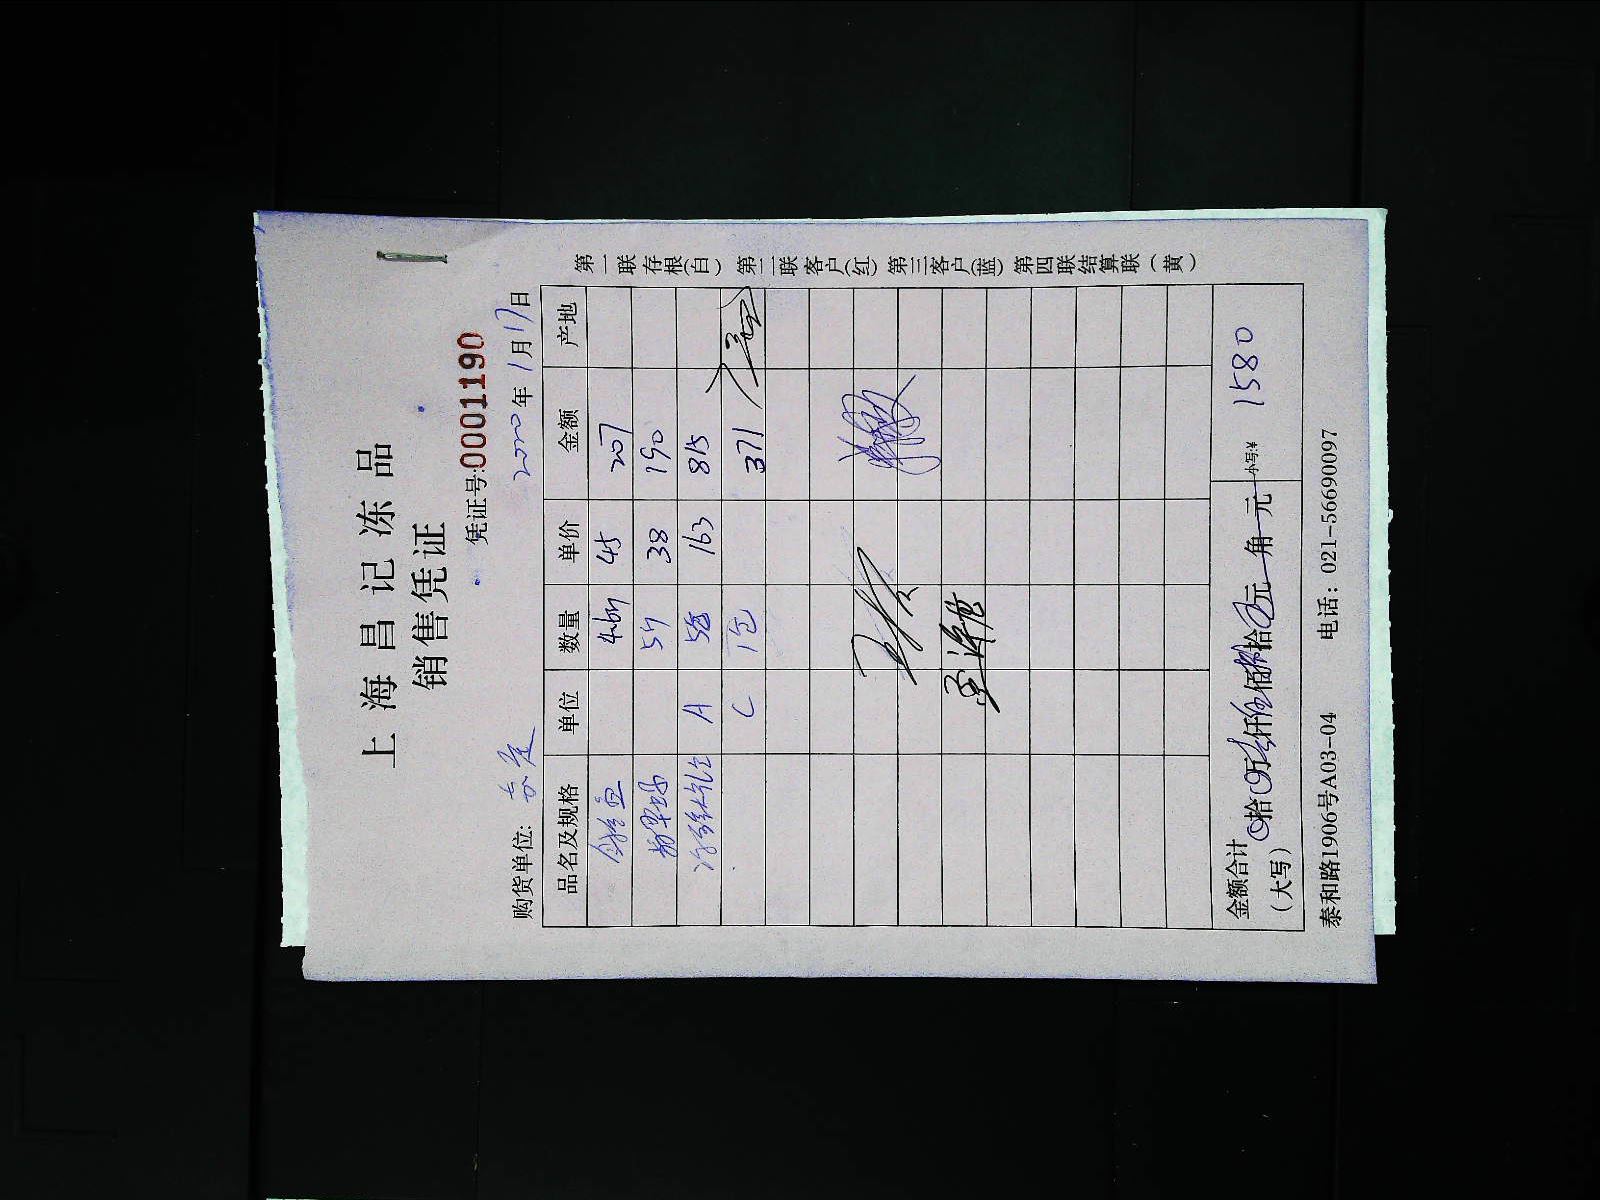 上海昌记冻品
销售凭证
凭证号:0001190
购货单位: 2020年1月17日
品名及规格 单位 数量 单价 金额 产地
45 207
38 190
A 163 815
C 1包 371
金额合计(大写) 拾 万 仟 佰 拾 元 角 元 小写:¥ 1580
泰和路1906号A03-04 电话：021-56690097
第一联存根(白) 第二联客户(红) 第三客户(蓝) 第四联结算联(黄)